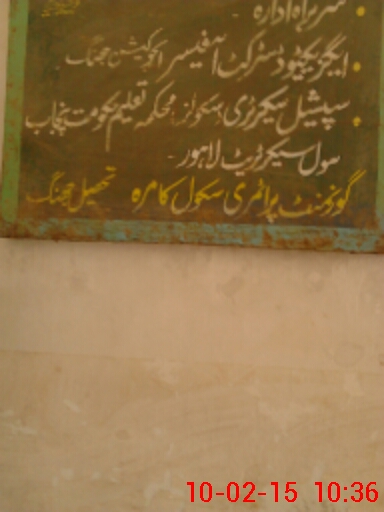 سربراہ ادارہ -
ایگزیکٹیو ڈسٹرکٹ آفیسر ایجوکیشن جھنگ -
سپیشل سیکرٹری (سکولز) محکمہ تعلیم حکومت پنجاب
سول سیکرٹریٹ لاہور -
گورنمنٹ پرائمری سکول کامرہ تحصیل جھنگ
10-02-15 10:36